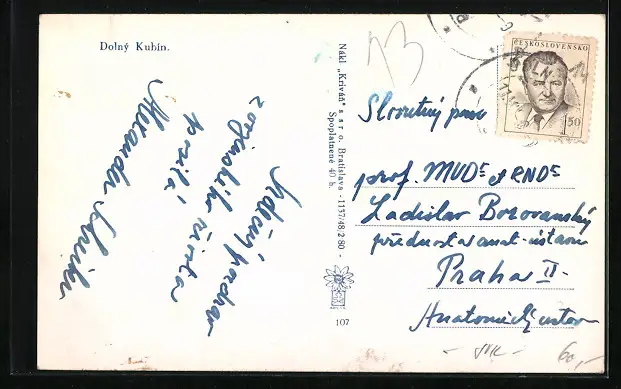 Dolný Kubín.
Srdečný pozdrav
z
posílá
Nákl. „Kriváň" s s r o. Bratislava - 1137/48/2-80 -
Spoplatnené 40 h.
107
ČESKOSLOVENSKO
1.50
Slovutný pan
prof. MUDr et RNDr
Ladislav Borovanský
přednosta anat. ústavu
Praha II-
Anatomický ústav
60,-